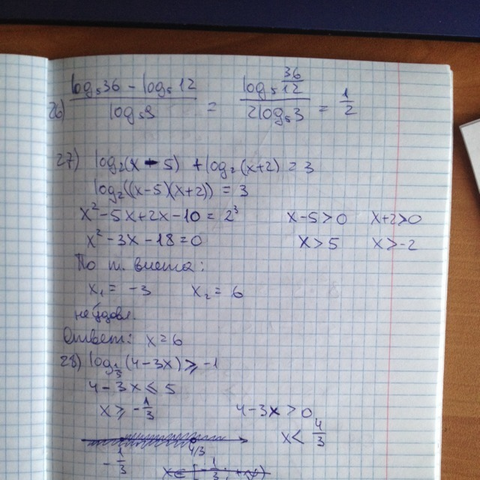 26) (log₅36 - log₅12)/(log₅9) = (log₅ 36/12)/(2log₅3) = 1/2
27) log₂(x-5) + log₂(x+2) = 3
log₂((x-5)(x+2)) = 3
x²-5x+2x-10=2³ x-5>0 x+2>0
x²-3x-18=0 x>5 x>-2
По т. Виета:
x₁ = -3 x₂ = 6
не удовл.
Ответ: x=6
28) log_{1/5}(4-3x) ⩾ -1
4-3x ⩽ 5
x ⩾ -1/3 4-3x > 0
x < 4/3
-1/3 4/3
x∈[-1/3; +∞)